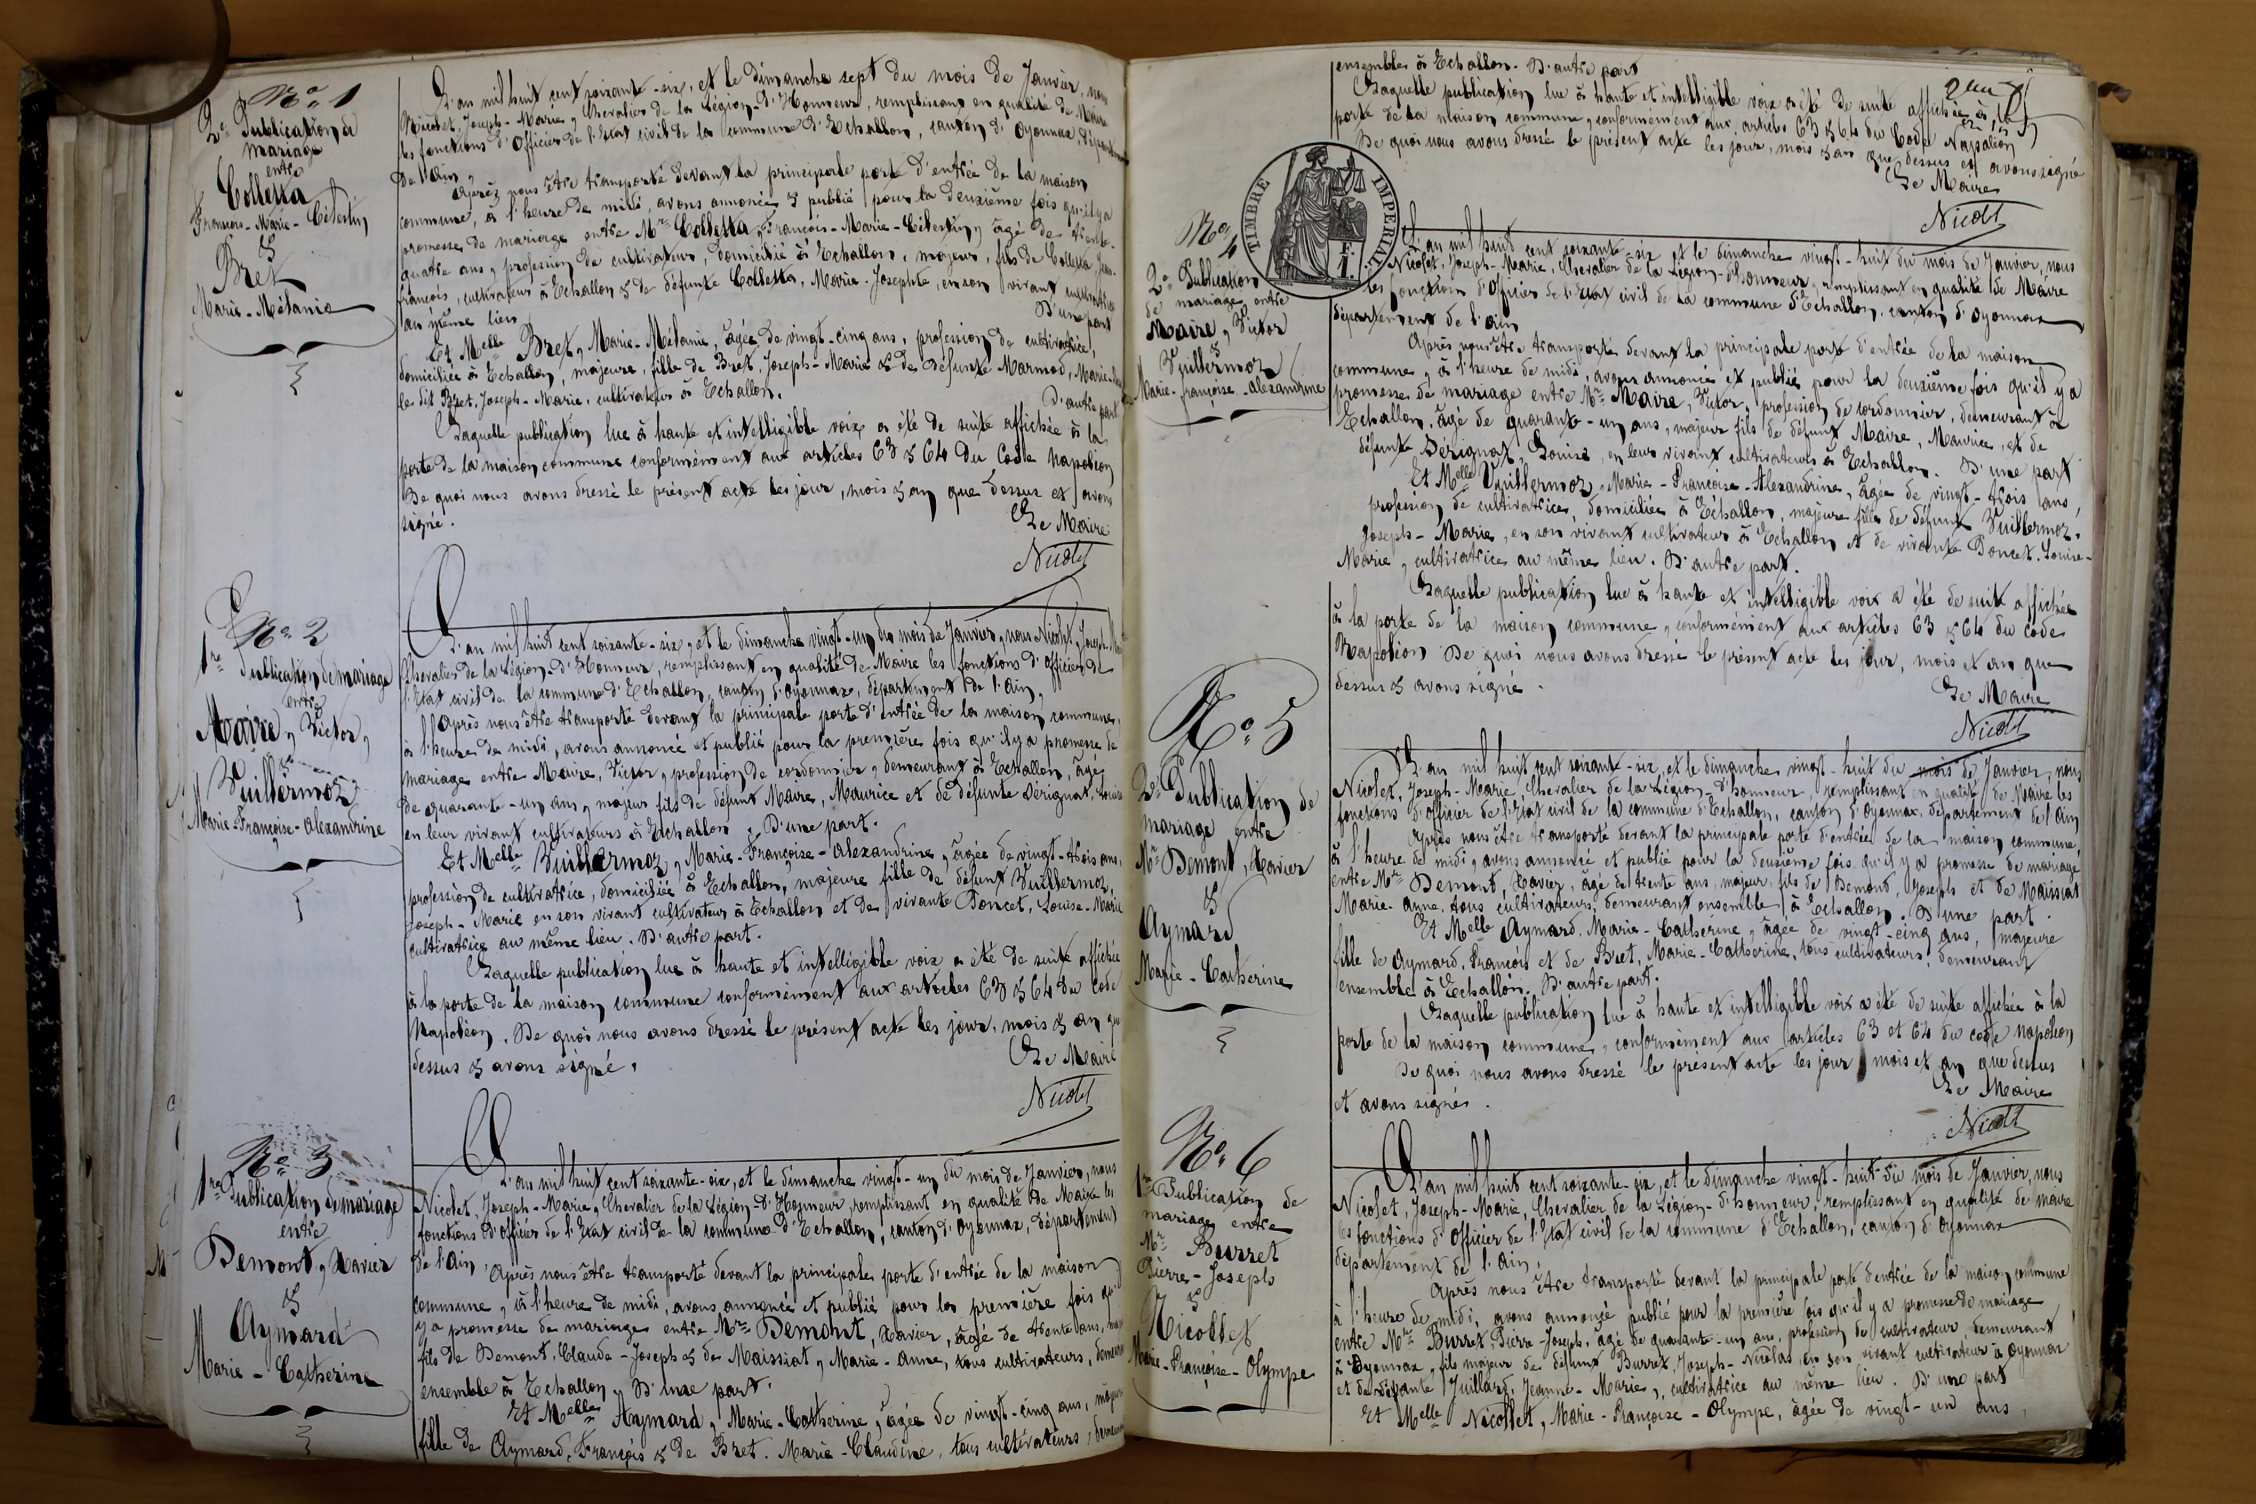 Nº 1
2e Publication de
mariage
entre
Colletta
François-Marie-Célestin
&
Bret
Marie-Mélanie
L'an mil huit cent soixante-six, et le dimanche sept du mois de Janvier, nous
Nicolet, Joseph-Marie, Chevalier de la Légion-d'Honneur, remplissant en qualité de Maire
les fonctions d'Officier de l'Etat civil de la commune d'Echallon, canton d'Oyonnax,
de l'Ain
Après nous être transporté devant la principale porte d'entrée de la maison
commune, à l'heure de midi, avons annoncé & publié pour la deuxième fois qu'il y a
promesse de mariage entre Mr Colletta, François-Marie-Célestin, âgé de trente-
quatre ans, profession de cultivateur, domicilié à Echallon, majeur, fils de Colletta
françois, cultivateur à Echallon & de défunte Colletta, Marie-Josephte, en son vivant
au même lieu D'une part
Et Melle Bret, Marie-Mélanie, âgée de vingt-cinq ans, profession de cultivatrice,
domiciliée à Echallon, majeure, fille de Bret, Joseph-Marie & de défunte Marmod,
le dit Bret, Joseph-Marie, cultivateur à Echallon. D'autre part
Laquelle publication lue à haute et intelligible voix a été de suite affichée à la
porte de la maison commune conformément aux articles 63 & 64 du Code Napoléon
De quoi nous avons dressé le présent acte les jour, mois & an que dessus et avons
signé.
Le Maire
Nicolet
Nº 2
1re
Publication de mariage
entre
Maire, Victor,
&
Vuillermoz
Marie-Françoise-Alexandrine
L'an mil huit cent soixante-six, et le dimanche vingt-un du mois de Janvier, nous Nicolet, Joseph
Chevalier de la Légion-d'Honneur, remplissant en qualité de Maire les fonctions d'Officier de
l'Etat civil de la commune d'Echallon, canton d'Oyonnax, département de l'Ain,
Après nous être transporté devant la principale porte d'entrée de la maison commune,
à l'heure de midi, avons annoncé et publié pour la première fois qu'il y a promesse de
mariage entre Maire, Victor, profession de cordonnier, demeurant à Echallon, âgé
de quarante-un ans, majeur fils de défunt Maire, Maurice et de défunte Dérignat,
en leur vivant cultivateurs à Echallon. D'une part.
Et Melle Vuillermoz, Marie-Françoise-Alexandrine, âgée de vingt-trois ans,
profession de cultivatrice, domiciliée à Echallon, majeure fille de défunt Vuillermoz,
Joseph-Marie en son vivant cultivateur à Echallon et de vivante Poncet, Louise-Marie
cultivatrice au même lieu. D'autre part.
Laquelle publication lue à haute et intelligible voix a été de suite affichée
à la porte de la maison commune conformément aux articles 63 & 64 du Code
Napoléon. De quoi nous avons dressé le présent acte les jour, mois & an que
dessus & avons signé.
Le Maire
Nicolet
Nº 3
1re Publication de mariage
entre
Demont, Xavier
&
Aymard
Marie-Catherine
L'an mil huit cent soixante-six, et le dimanche vingt-un du mois de Janvier, nous
Nicolet, Joseph-Marie, Chevalier de la Légion-d'Honneur, remplissant en qualité de Maire les
fonctions d'Officier de l'Etat civil de la commune d'Echallon, canton d'Oyonnax, Département
de l'Ain,
Après nous être transporté devant la principale porte d'entrée de la maison
commune, à l'heure de midi, avons annoncé et publié pour la première fois qu'il
y a promesse de mariage entre Mr Demont, Xavier, âgé de trente ans,
fils de Demont, Claude-Joseph & de Maissiat, Marie-Anne, tous cultivateurs,
ensemble à Echallon, D'une part.
Et Melle Aymard, Marie-Catherine, âgée de vingt-cinq ans,
fille de Aymard, François & de Bret. Marie-Claudine, tous cultivateurs,
ensemble à Echallon. D'autre part
Laquelle publication lue à haute et intelligible voix a été de suite affichée à la
porte de la maison commune, conformément aux articles 63 & 64 du Code Napoléon
De quoi nous avons dressé le présent acte les jour, mois & an que dessus et avons signé
Le Maire
Nicolet
TIMBRE IMPERIAL
F.
1.
Nº 4
2e Publication
de mariage entre
Maire, Victor
&
Vuillermoz
Marie-françoise-Alexandrine
L'an mil huit cent soixante-six et le dimanche vingt-huit du mois de Janvier, nous
Nicolet, Joseph-Marie, Chevalier de la Légion-d'honneur, remplissant en qualité de Maire
les fonctions d'Officier de l'Etat civil de la commune d'Echallon, canton d'Oyonnax
département de l'Ain
Après nous être transporté devant la principale porte d'entrée de la maison
commune, à l'heure de midi, avons annoncé et publié pour la deuxième fois qu'il y a
promesse de mariage entre Mr Maire, Victor, profession de cordonnier, demeurant à
Echallon, âgé de quarante-un ans, majeur fils de défunt Maire, Maurice, et de
défunte Dérignat, Louise, en leur vivant cultivateurs à Echallon. D'une part
Et Melle Vuillermoz, Marie-Françoise-Alexandrine, âgée de vingt-trois ans,
profession de cultivatrice, domiciliée à Echallon, majeure fille de défunt Vuillermoz,
Joseph-Marie, en son vivant cultivateur à Echallon et de vivante Poncet, Louise-
Marie, cultivatrice au même lieu. D'autre part.
Laquelle publication lue à haute et intelligible voix a été de suite affichée
à la porte de la maison commune, conformément aux articles 63 & 64 du Code
Napoléon De quoi nous avons dressé le présent acte les jour, mois et an que
dessus & avons signé.
Le Maire
Nicolet
Nº 5
2e Publication de
mariage entre
Mr Demont, Xavier
&
Aymard
Marie-Catherine
L'an mil huit cent soixante-six, et le dimanche vingt-huit du mois de Janvier, nous
Nicolet, Joseph-Marie, Chevalier de la Légion-d'honneur remplissant en qualité de Maire les
fonctions d'Officier de l'Etat civil de la commune d'Echallon, canton d'Oyonnax, département de l'Ain
Après nous être transporté devant la principale porte d'entrée de la maison commune,
à l'heure de midi, avons annoncé et publié pour la deuxième fois qu'il y a promesse de mariage
entre Mr Demont, Xavier, âgé de trente ans, majeur, fils de Demont, Joseph et de Maissiat
Marie-Anne, tous cultivateurs, demeurant ensemble à Echallon. D'une part.
Et Melle Aymard, Marie-Catherine, âgée de vingt-cinq ans, majeure
fille de Aymard, François et de Bret, Marie-Catherine, tous cultivateurs, demeurant
ensemble à Echallon. D'autre part.
Laquelle publication lue à haute et intelligible voix a été de suite affichée à la
porte de la maison commune, conformément aux articles 63 et 64 du code napoléon
De quoi nous avons dressé le présent acte les jour mois et an que dessus
et avons signé.
Le Maire
Nicolet
Nº 6
1re Publication de
mariage entre
Mr Burret
Pierre-Joseph
&
Nicollet
Marie-Françoise-Olympe
L'an mil huit cent soixante-six, et le dimanche vingt-huit du mois de Janvier, nous
Nicolet, Joseph-Marie, Chevalier de la Légion-d'honneur, remplissant en qualité de maire
les fonctions d'Officier de l'Etat civil de la commune d'Echallon, canton d'Oyonnax
département de l'Ain,
Après nous être transporté devant la principale porte d'entrée de la maison commune
à l'heure de midi, avons annoncé publié pour la première fois qu'il y a promesse de mariage
entre Mr Burret, Pierre-Joseph, âgé de quarante-un ans, profession de cultivateur, demeurant
à Oyonnax, fils majeur de défunt Burret, Joseph-Nicolas en son vivant cultivateur à Oyonnax
et de vivante Juillard, Jeanne-Marie, cultivatrice au même lieu. D'une part
Et Melle Nicollet, Marie-Françoise-Olympe, âgée de vingt-un ans,